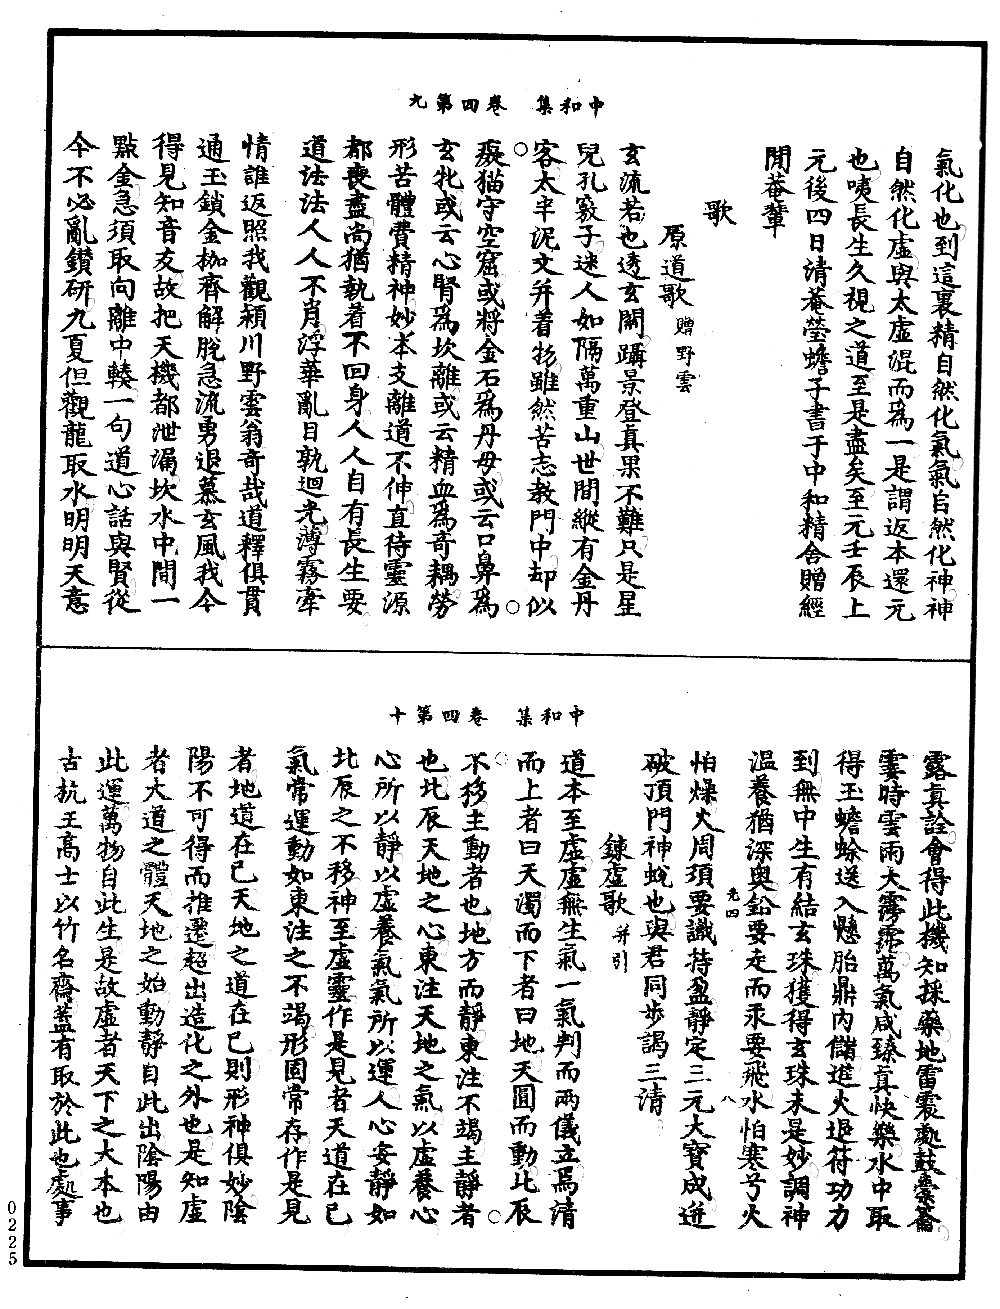 中和集　卷四第九
氣化也到這裏精自然化氣氣自然化神神
自然化虛與太虛混而為一是謂返本還元
也咦長生久視之道至是盡矣至元壬辰上
元後四日清菴瑩蟾子書于中和精舍贈經
閒菴輩
歌
原道歌贈野雲
玄流若也透玄關躡景登真果不難只是星
兒孔竅子迷人如隔萬重山世間縱有金丹
客太半泥文并着物雖然苦志教門中却似
癡猫守空窟或將金石為丹母或云口鼻為
玄牝或云心腎為坎離或云精血為奇耦勞
形苦體費精神妙本支離道不伸直待靈源
都喪盡尚猶執着不回身人人自有長生要
道法法人人不肖浮華亂目孰迴光薄霧牽
情誰返照我觀潁川野雲翁奇哉道釋俱貫
通玉鎖金枷齊解脫急流勇退慕玄風我今
得見知音友故把天機都泄漏坎水中間一
點金急須取向離中輳一句道心話與賢從
今不必亂鑽研九夏但觀龍取水明明天意
中和集　卷四第十
露真詮會得此機知採藥地雷震處鼓橐籥
霎時雲雨大霶霈萬氣咸臻真快樂水中取
得玉蟾蜍送入懸胎鼎內儲進火退符功力
到無中生有結玄珠獲得玄珠未是妙調神
溫養猶深奧鉛要走而汞要飛水怕寒兮火
怕燥火周須要識持盈靜定三元大寶成迸
破頂門神蛻也與君同步謁三清
鍊虛歌并引
道本至虛虛無生氣一氣判而兩儀立焉清
而上者曰天濁而下者曰地天圓而動北辰
不移主動者也地方而靜東注不竭主靜者
也北辰天地之心東注天地之氣以虛養心
心所以靜以虛養氣氣所以運人心安靜如
北辰之不移神至虛靈作是見者天道在已
氣常運動如東注之不竭形固常存作是見
者地道在已天地之道在已則形神俱妙陰
陽不可得而推遷超出造化之外也是知虛
者大道之體天地之始動靜自此出陰陽由
此運萬物自此生是故虛者天下之大本也
古杭王高士以竹名齋蓋有取於此也處事
光四
八
0225